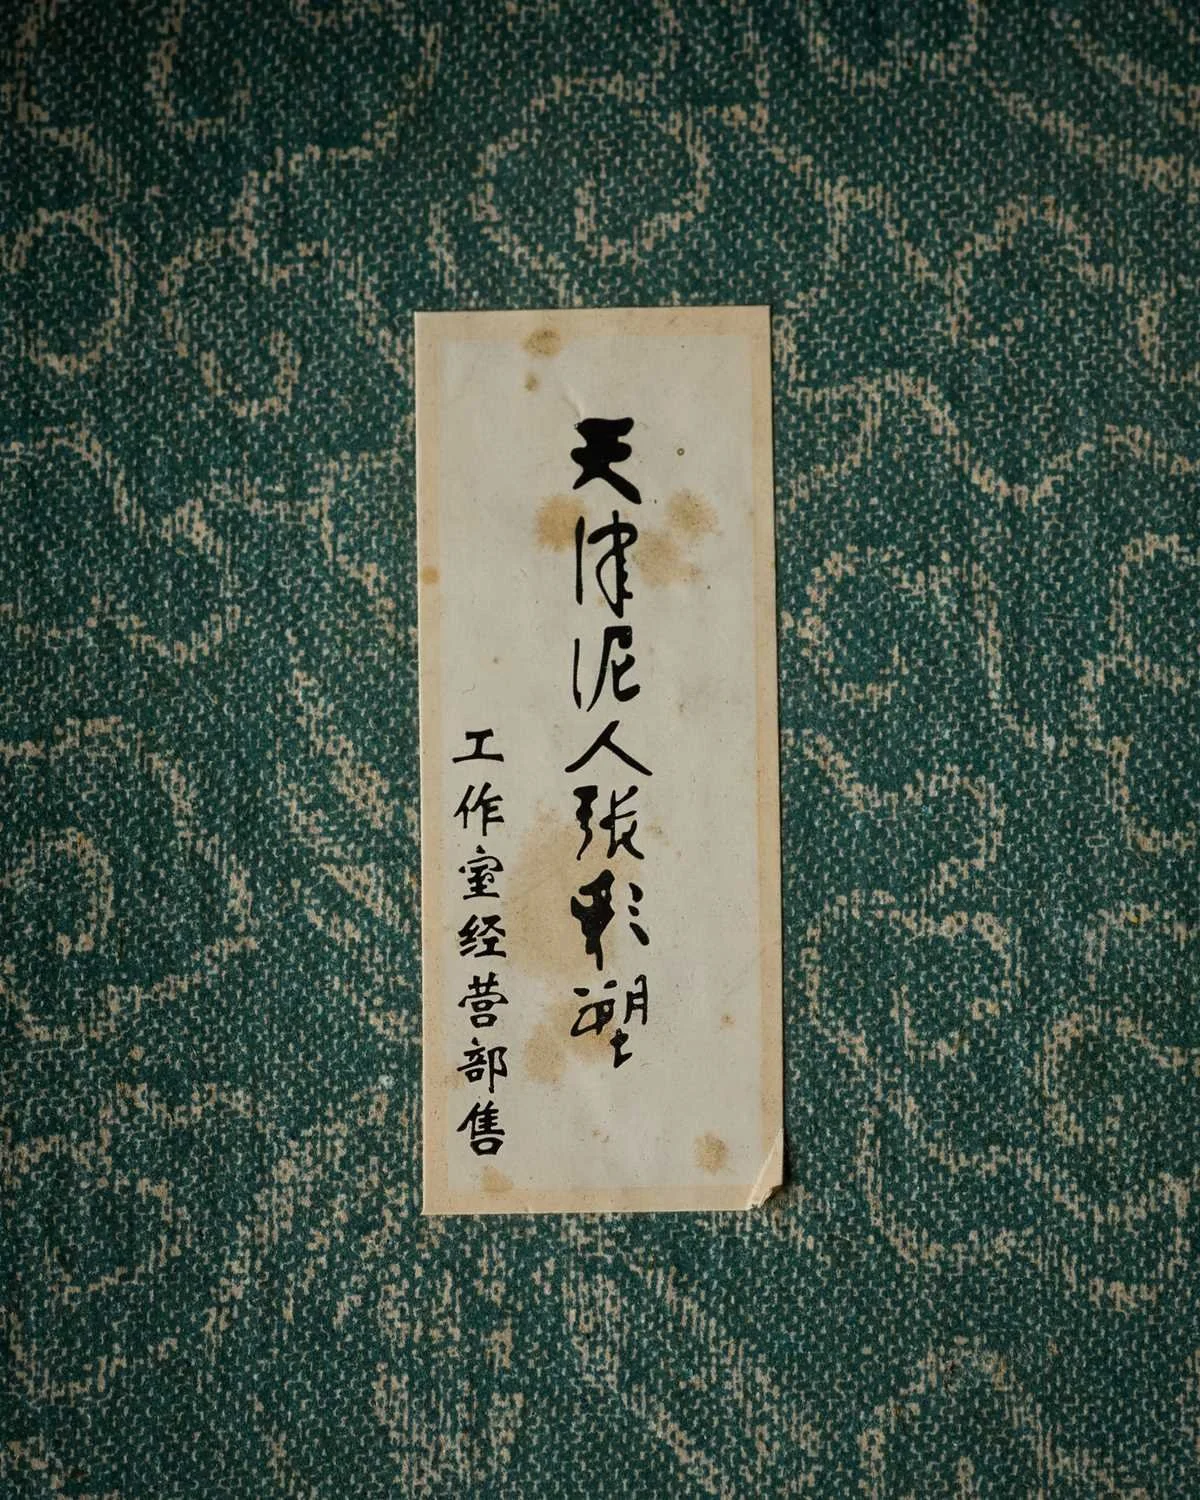 天津泥人张彩塑
工作室经营部售